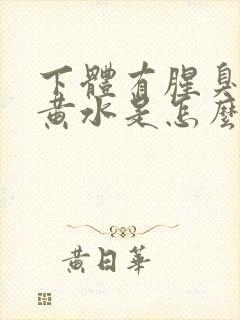 下體有腥臭
黃水是怎麼
黃日華